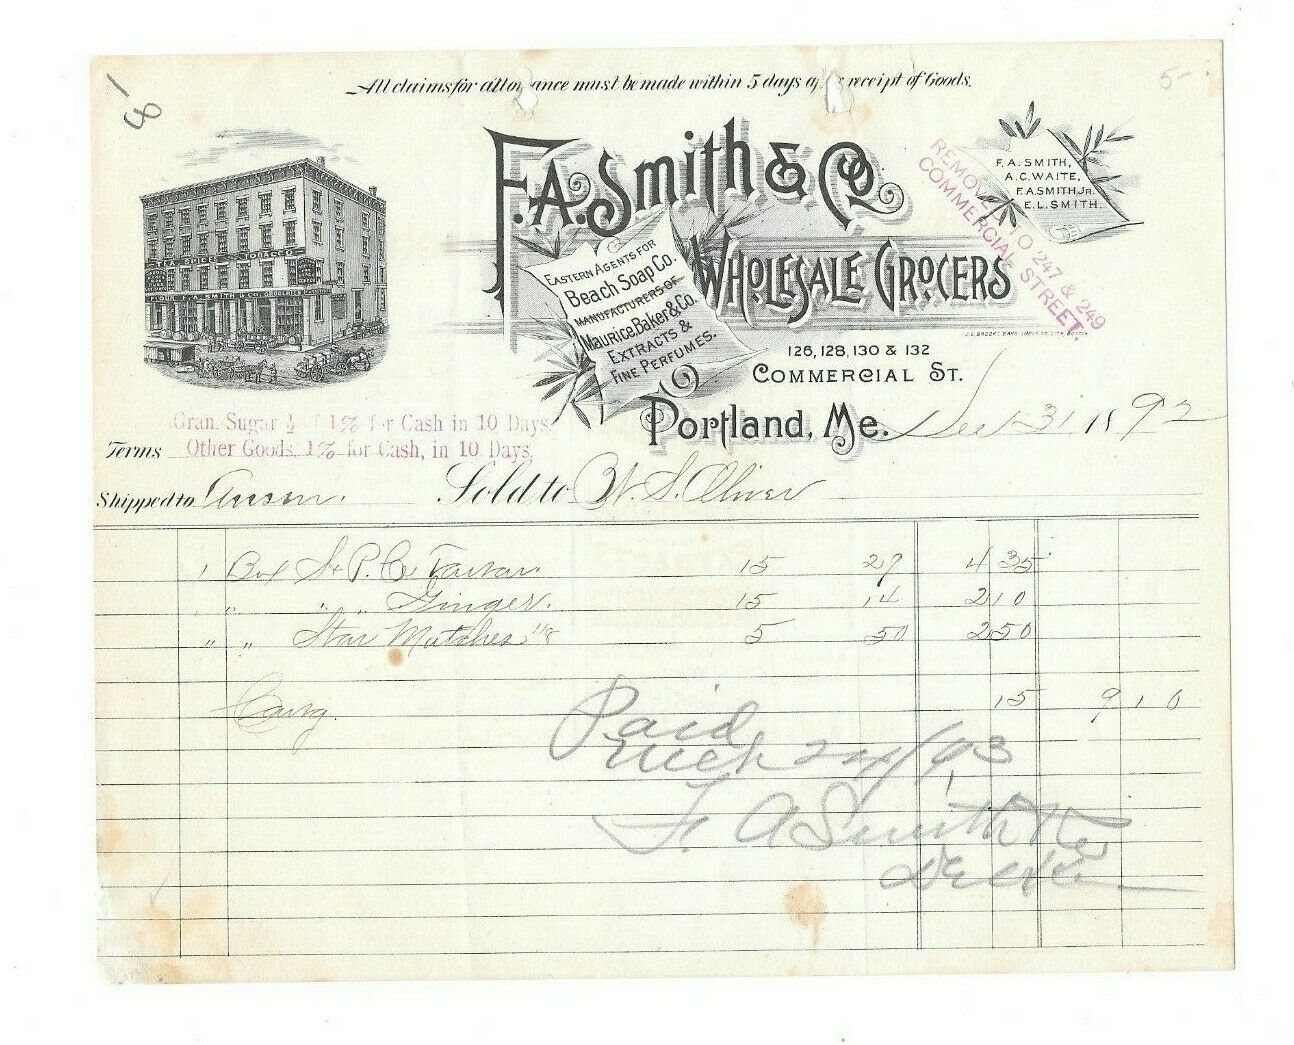 All claims for allowance must be made within 5 days after receipt of Goods.
5-
18
F.A. Smith & Co
WHOLESALE GROCERS
F. A. SMITH,
A. C. WAITE,
F. A. SMITH JR.
E. L. SMITH.
REMOVED TO 247 & 249
COMMERCIAL STREET
EASTERN AGENTS FOR
Beach Soap Co.
MANUFACTURERS OF
Maurice, Baker & Co.
EXTRACTS &
FINE PERFUMES.
TEA SPICE TOBACCO
FLOUR F.A. SMITH & CO. GROCERIES
126, 128, 130 & 132
COMMERCIAL ST.
Portland, Me. Dec 31 1892
Gran. Sugar ½ of 1% for Cash in 10 Days
Terms Other Goods, 1% for Cash, in 10 Days.
Shipped to Anson. Sold to W. S. Oliver
1 Box St P. C Tartar 15 29 4 35
" " " " Ginger. 15 14 2 10
" " Star Matches 118 5 50 2 50
Cartg. 15 9 10
Paid
Mch 24/93
F. A Smith & Co